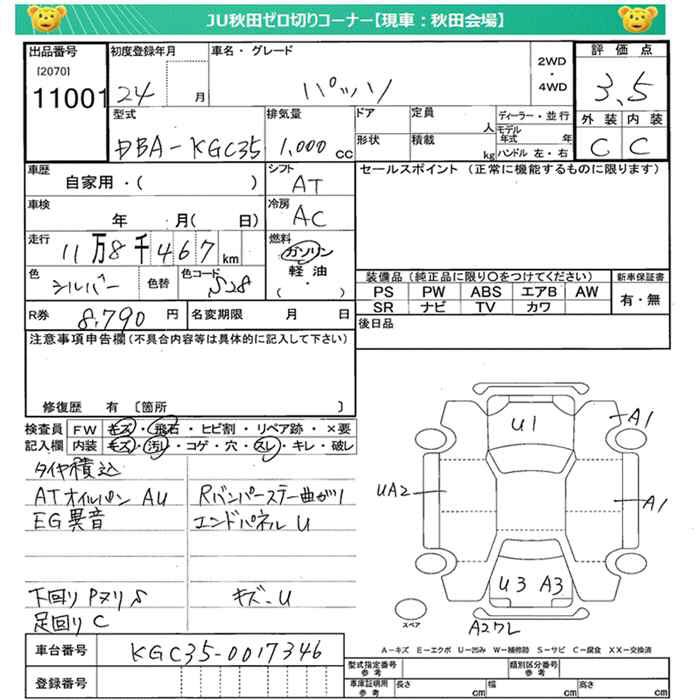 JU秋田ゼロ切りコーナー【現車：秋田会場】
出品番号 初度登録年月 車名・グレード 2WD・4WD 評価点
[2070]
11001 24 月 パッソ 3.5
型式 排気量 ドア 定員 人 ディーラー・並行 外装 内装
DBA-KGC35 1,000 cc 形状 積載 kg モデル年式 年 ハンドル 左・右 C C
車歴 自家用・( ) シフト AT セールスポイント (正常に機能するものに限ります)
車検 年 月( 日) 冷房 AC
走行 11万8千467km 燃料 ガソリン
軽油
( )
色 シルバー 色替 色コード S28 装備品 (純正品に限り〇をつけてください) 新車保証書
PS PW ABS エアB AW 有・無
SR ナビ TV カワ
R券 8,790 円 名変期限 月 日 後日品
注意事項申告欄(不具合内容等は具体的に記入して下さい)
修復歴 有 〔箇所 〕
検査員 FW キズ・飛石・ヒビ割・リペア跡・×要
記入欄 内装 キズ・汚レ・コゲ・穴・スレ・キレ・破レ
タイヤ積込
ATオイルパン AU Rバンパーステー曲がり
EG異音 エンドパネル U
下回り Pヌリ S キズ-U
足回り C
U1 A1
UA2 A1
U3 A3
スペア
A-キズ E-エクボ U-凹み W-補修跡 S-サビ C-腐食 XX-交換済
車台番号 KGC35-0017346
登録番号
型式指定番号 参考 類別区分番号 参考
車庫証明用 参考 長さ cm 幅 cm 高さ cm